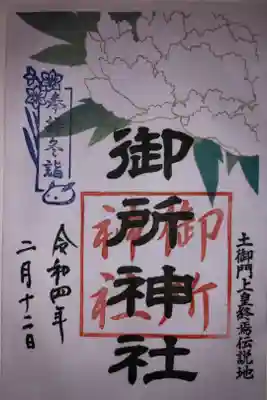 土御門上皇終焉伝説地
御所神社
御所
神社
冬詣
令和四年
二月十二日